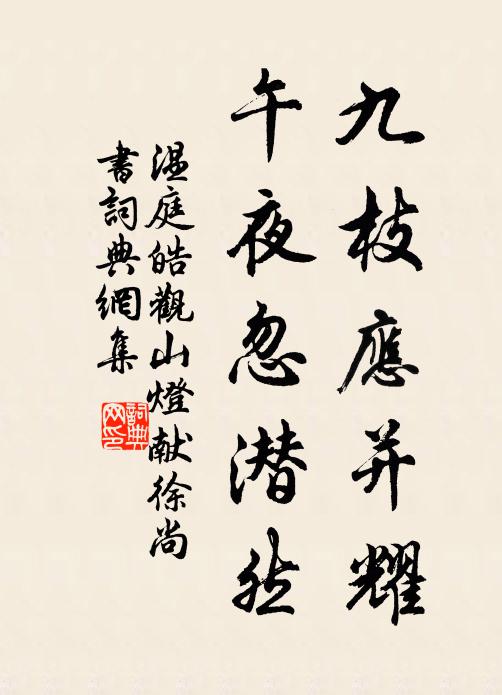 九枝應并耀
午夜忽潜然
温庭皓觀山燈献徐尚
書詞典網集
詞典
网印